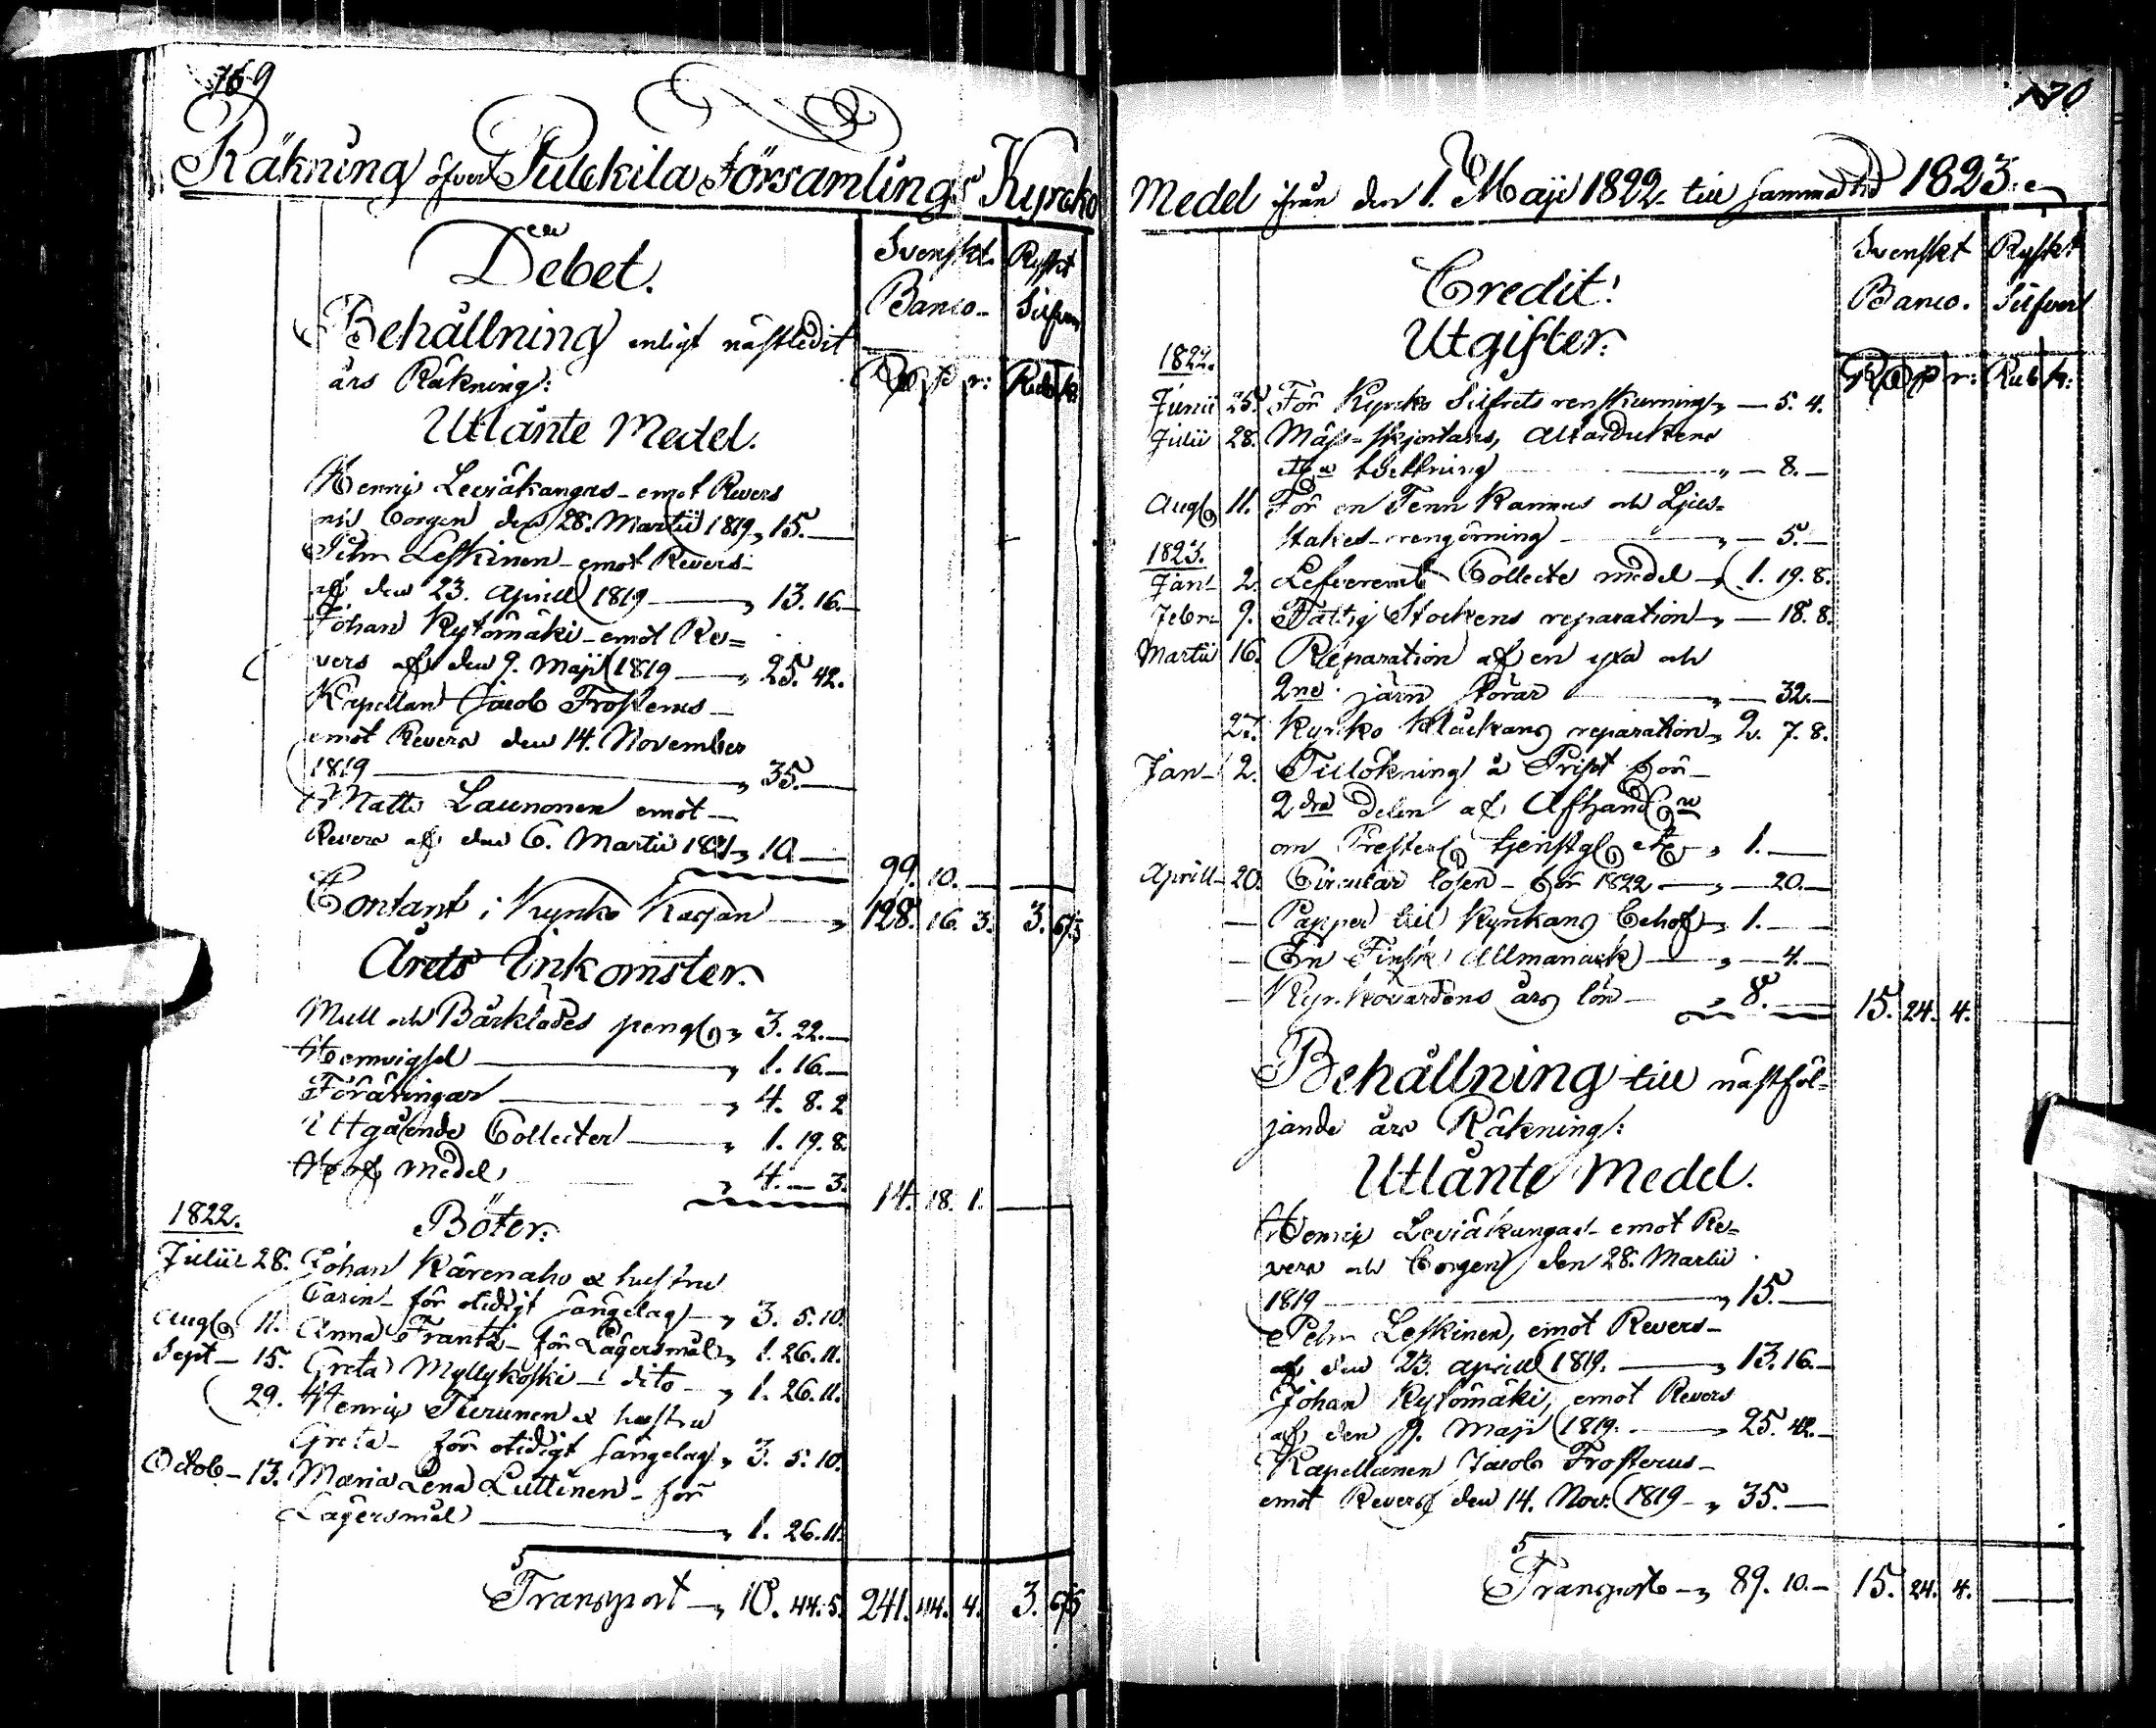 169
Räkning öfver Pulckila Församlings Kyrcko
Debet.
Svenskt Banco.
Ryskt Silfver
Behållning enligt nästledit
års Räkning:
Rd s r: Rub k:
Utlånte Medel.
Henrix Leviäkangas emot Revers
och borgen den 28. Martii 1819 " 15. —
Pehr Leskinen emot Revers
af den 23. Aprill 1819 — " 13. 16. —
Johan Kytömäki emot Re=
vers af den 9. Maji 1819 — " 25. 42.
Kapellan Jacob Frosterus
emot Revers den 14. November
1819 — " 35. —
Matts Launonen emot
Revers af den 6. Martii 1821 " 10. — 99. 10. — —
Contant i Kyrko Kassan — " 128. 16. 3. 3. 67 5
Årets Inkomster.
Mull och Bårklädes peng " 3. 22. —
Hemvigsel — " 1. 16. —
Föräringar — " 4. 8. 2
Utgående Collecter — " 1. 19. 8.
Håf medel " 4. — 3. 14. 18. 1. —
1822. Böter:
Julii 28. Johan Kärenaho & hustru
Carin för otidigt sängelag — " 3. 5. 10.
Aug 11. Anna Frantz för Lägersmål " 1. 26. 11.
Sept 15. Greta Myllykoski — dito — " 1. 26. 11.
29. Henrix Tierunen & hustru
Greta för otidigt sängelag " 3. 5. 10.
Octob 13. Maria Lena Luttinen för
Lägersmål — " 1. 26. 11.
Transport " 10. 44. 5. 241. 44. 4. 3. 67 5
170
Medel ifrån den 1. Maji 1822 till samma tid 1823.
Credit:
Svenskt Banco.
Ryskt Silfver
Utgifter:
Rd s r: Rub k:
1822.
Junii 25. För Kyrcko Silfrets renskurning " — 5. 4.
Julii 28. Mäss-skjortans, Altardukens
tvättning " — 8. —
Aug 11. För en Tenn Kannas och Ljus=
stakes rengörning — " — 5. —
1823.
Jan 2. Lefvererat Collecte medel " 1. 19. 8.
Febr 9. Fattig Stockens reparation " — 18. 8.
Martii 16. Reparation af en yxa och
2ne järn störar — " — 32. —
27. Kyrko Klåckans reparation " 2. 7. 8.
Jan 2. Tillökning å Priset för
2dra delen af Afhand
om Presters tjenstg etc " 1. —
Aprill 20. Circulär lösen för 1822 — " — 20. —
— Papper till Kyrkans behof " 1. —
— En Finsk Allmanack — " — 4. —
— Kyrkovärdens års lön — " 8. — 15. 24. 4. —
Behållning till nästföl=
jande års Räkning:
Utlånte Medel.
Henrix Leviäkangas emot Re=
vers och borgen den 28. Martii
1819 — " 15. —
Pehr Leskinen, emot Revers
af den 23. Aprill 1819. — " 13. 16. —
Johan Kytömäki, emot Revers
af den 9. Maji 1819. — " 25. 42. —
Kapellanen Jacob Frosterus
emot Revers den 14. Nov: 1819 " 35. —
Transport " 89. 10. — 15. 24. 4. —